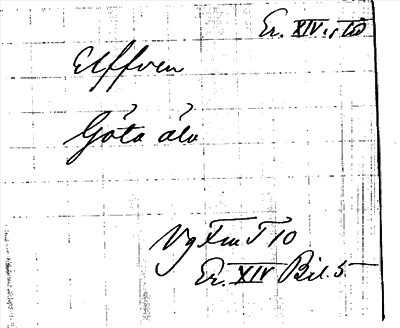 Er. XIV:s tid
Elffven
Göta älv
Vg Fm T 10
Er. XIV Bil. 5